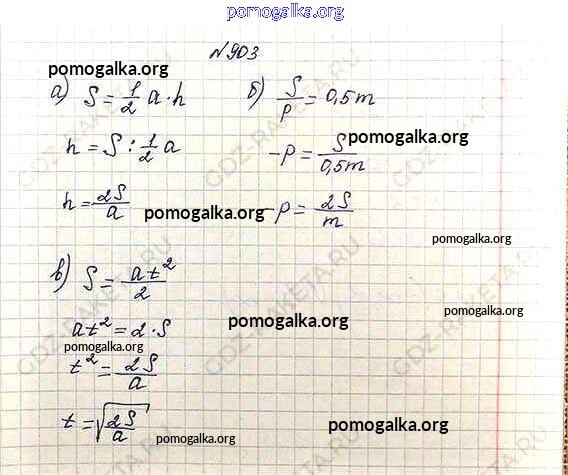 pomogalka.org
№903
pomogalka.org
а) S = 1/2 a · h
б) S/P = 0,5m
h = S : 1/2 a
-P = S/0,5m
pomogalka.org
h = 2S/a
pomogalka.org
-P = 2S/m
pomogalka.org
в) S = at²/2
pomogalka.org
at² = 2 · S
pomogalka.org
pomogalka.org
t² = 2S/a
t = √2S/a
pomogalka.org
pomogalka.org
GDZ-RAKETA.RU
GDZ-RAKETA.RU
GDZ-RAKETA.RU
GDZ-RAKETA.RU